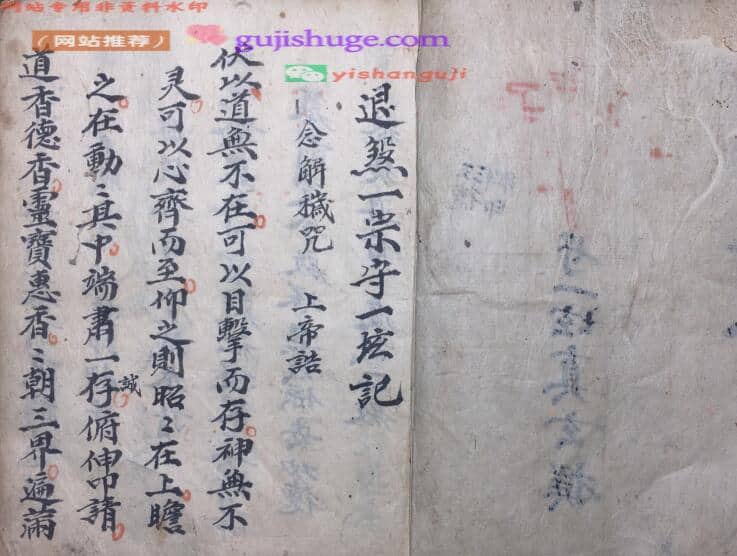 网站专用非资料水印
(网站推荐)
gujishuge.com
yishanguji
退煞一宗守一玹記
念解穢咒 上帝誥
伏以道無不在可以目擊而存神無不
灵可以心齊而至仰之則昭〻在上瞻
之在動〻其中端肅一存誠俯伸叩請
道香德香靈寶惠香〻朝三界遍滿